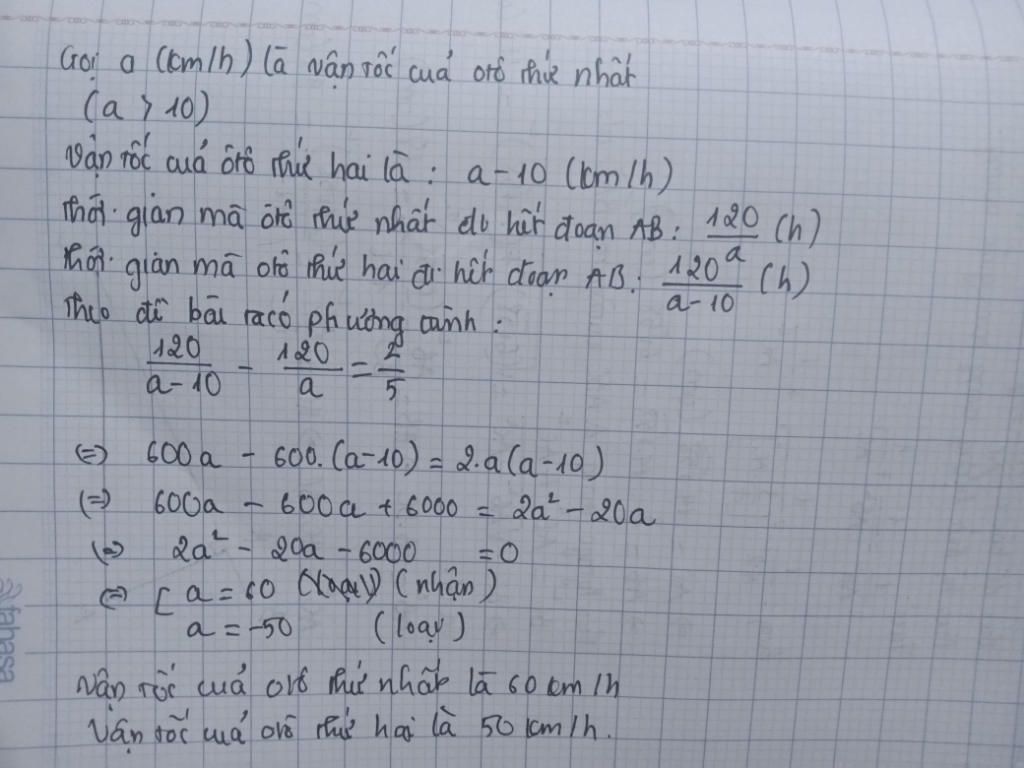 Gọi a (km/h) là vận tốc của ôtô thứ nhất
(a > 10)
Vận tốc của ôtô thứ hai là : a - 10 (km/h)
Thời gian mà ôtô thứ nhất đi hết đoạn AB : 120/a (h)
Thời gian mà ôtô thứ hai đi hết đoạn AB : 120/(a-10) (h)
Theo đề bài ta có phương trình :
120/(a-10) - 120/a = 2/5
⇔ 600a - 600.(a-10) = 2.a(a-10)
⇔ 600a - 600a + 6000 = 2a² - 20a
⇔ 2a² - 20a - 6000 = 0
⇔ [ a = 60 (loại) (nhận)
a = -50 (loại)
Vận tốc của ôtô thứ nhất là 60 km/h
Vận tốc của ôtô thứ hai là 50 km/h.
fahasa